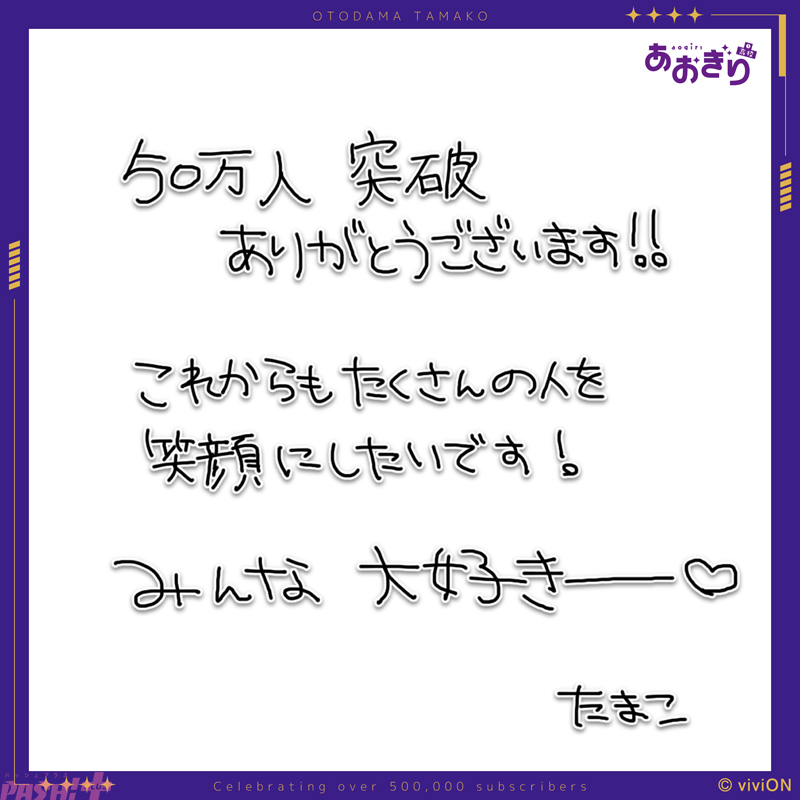 OTODAMA TAMAKO
aogiri
あおぎり
高校
50万人 突破
ありがとうございます!!
これからもたくさんの人を
笑顔にしたいです!
みんな 大好きー♡
たまこ
パッシュプラス
PASH!+
Celebrating over 500,000 subscribers
© viviON